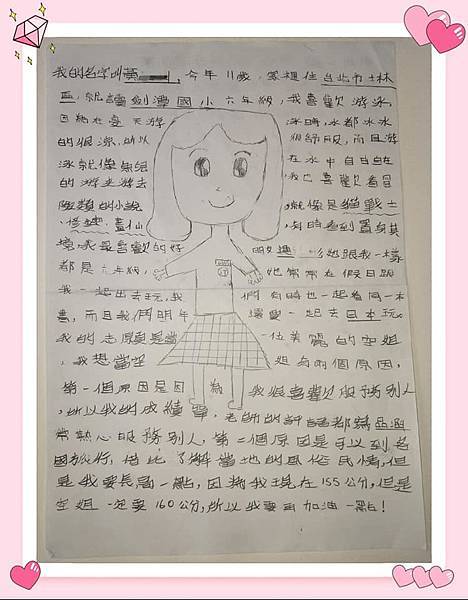 我的名字叫黃 , 今年11歲, 家裡住台北市士林
區, 就讀劍潭國小六年級, 我喜歡游泳,
因為在夏天游 泳時, 水都冰冰
的很涼, 所以 很舒服, 而且游
泳就像魚兒 在水中自由自在
的游來游去 我也喜歡看冒
險類的小說 就像是貓戰士
、修煉、蓋仙 , 有時看到置身其
境、我最喜歡的好 朋友趣 她跟我一樣
都是六年級, 她常常在假日跟
我一起出去玩, 我 們有時也一起看同一本
書, 而且我們明年 還要一起去日本玩。
我的志願是當 一位美麗的空姐
, 我想當空 姐有兩個原因,
第一個原因是因 為 我很喜歡服務別人
, 所以我的成績單, 老師的評語都說
常熱心服務別人, 第二個原因是可以到各
國旅行, 借此了解當地的風俗民情, 但
是我要長高一點, 因為我現在155公分, 但是
空姐一定要160公分, 所以我要再加油一點!